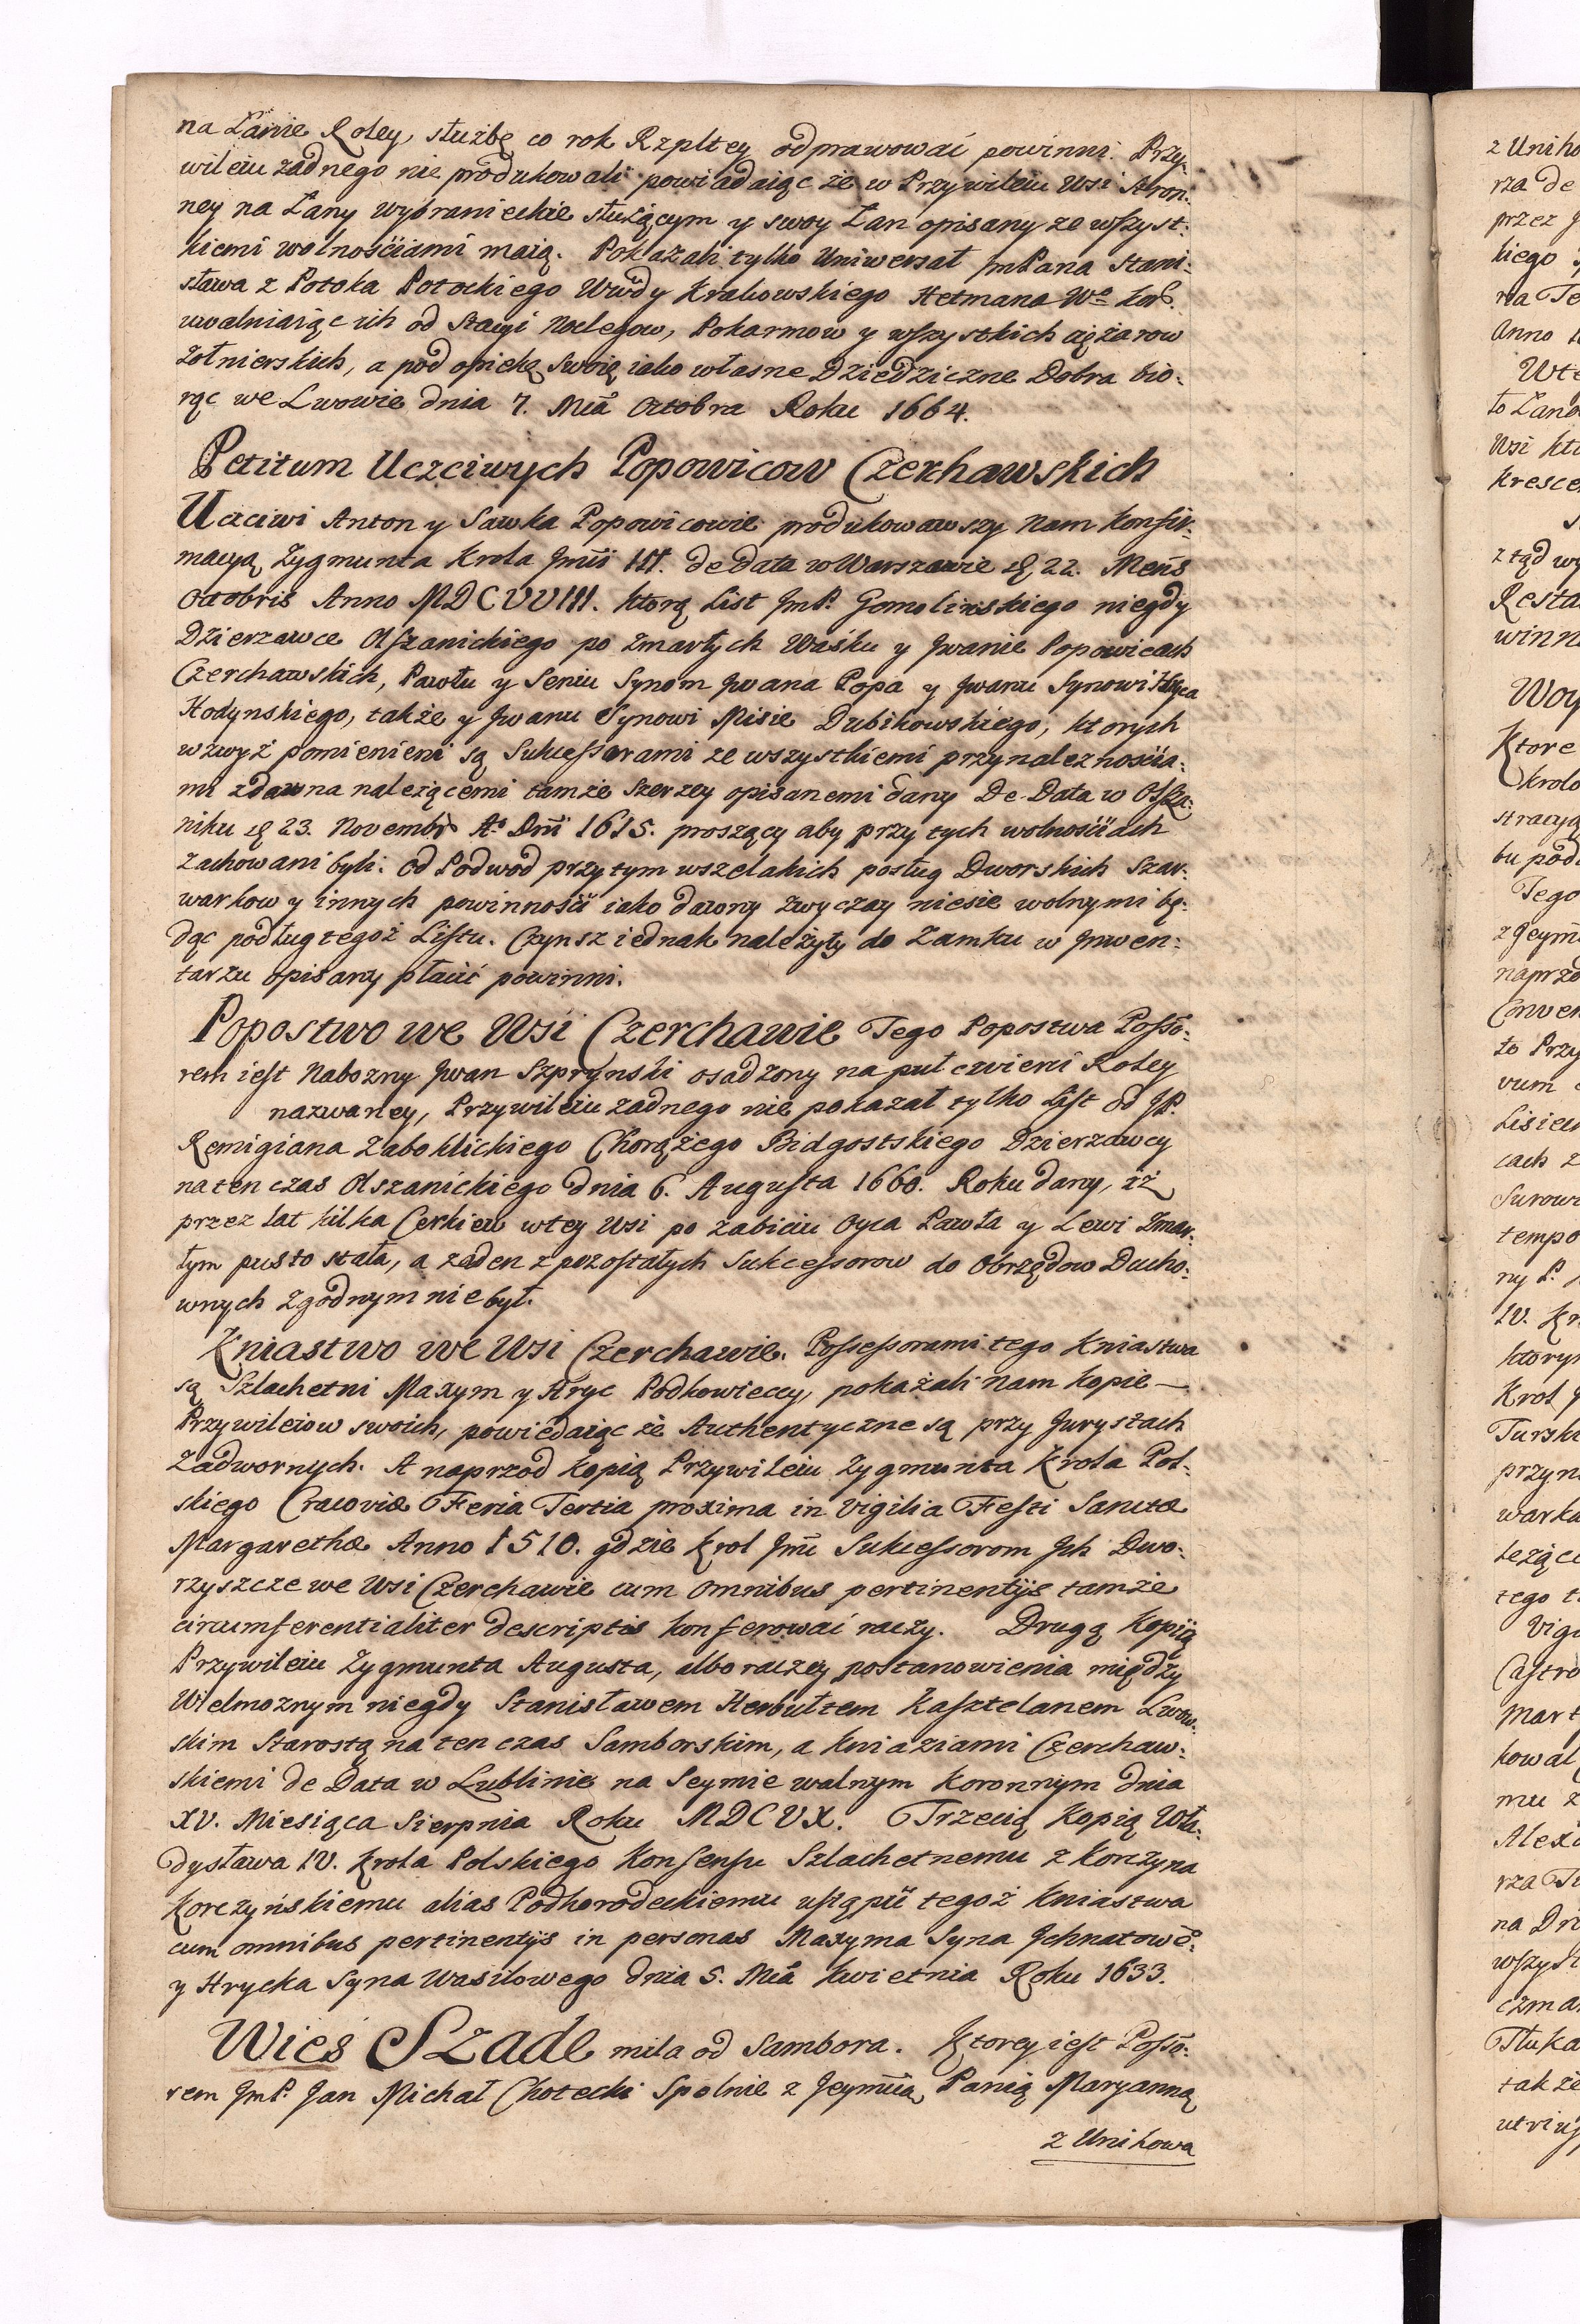 na Łanie Roley, służbę co rok Rzpltey odprawować powinni. Przy-
wileiu żadnego nie produkowali powiadaiąc że w Przywileiu Wsi Stron-
ney na Łany wybranieckie służącym y swoy Łan opisany ze wszyst-
kiemi wolnościami maią. Pokazali tylko Uniwersał JmPana Stani-
sława z Potoka Potockiego Wwdy Krakowskiego Hetmana Wo Kor.
uwalniaiąc ich od Stacyi Noclegow, Pokarmow y wszystkich ciężarow
Żołnierskich, a pod opiekę swoię iako własne Dziedziczne Dobra bio-
rąc we Lwowie dnia 7. Mca Octobra Roku 1664.
Petitum Uczciwych Popowicow Czerhawskich
Uczciwi Anton y Sawka Popowicowie produkowawszy Nam Konfir-
macyą Zygmunta Krola Jmci III. de data w Warszawie d. 22. Mens
Octobris Anno MDCVVIII. ktorą List JmP. Gomolinskiego niegdy
Dzierzawce Olszanickiego po zmarłych Waśku y Jwanie Popowicach
Czerchawskich, Pawłu y Seniu Synom Jwana Popa y Jwanu Synowi Hryca
Hodynskiego, także y Jwanu Synowi Misie Dubikowskiego, ktorych
wzwyż pomienieni są Sukcessorami ze wszystkiemi przynależnościa-
mi zdawna należącemi tamże szerzey opisanemi dany De Data w Olsza-
niku d. 23. Novembr Ao Dni 1615. proszący aby przy tych wolnościach
zachowani byli. Od Podwod przytym wszelakich posług Dworskich Szar-
warkow y innych powinności iako dawny zwyczay niesie wolnymi bę-
dąc podług tegoż Listu. Czynsz iednak należyty do Zamku w Jnwen-
tarzu opisany płacić powinni.
Popostwo we Wsi Czerchawie Tego Popostwa Posso-
rem iest Nabozny Jwan Szprynski osadzony na puł cwierci Roley
nazwaney, Przywileiu żadnego nie pokazał tylko List od JP.
Remigiana Zaboklickiego Chorążego Bidgostskiego Dzierzawcy
na ten czas Olszanickiego dnia 6. Augusta 1660. Roku dany, iż
przez lat kilka Cerkiew w tey Wsi po zabiciu Oyca Pawła y Lewi Zmar-
łym pusto stała, a żaden z pozostałych Sukcessorow do Obrzędow Ducho-
wnych zgodnym nie był.
Kniastwo we Wsi Czerchawie. Possessorami tego Kniastwa
są Szlachetni Maxym y Hryc Podhowieccy, pokazali Nam Kopie
Przywileiow swoich, powiedaiąc że Authentyczne są przy Jurystach
Zadwornych. A naprzod Kopią Przywileiu Zygmunta Krola Pol-
skiego Cracoviæ Feria Tertia proxima in Vigilia Festi Sanctæ
Margarethæ Anno 1510. gdzie Krol Jmc Sukcessorom Jch Dwo-
rzyszcze we Wsi Czerchawie cum omnibus pertinentijs tamże
circumferentialiter descriptis konferować raczy. Drugą Kopią
Przywileiu Zygmunta Augusta, albo raczey postanowienia między
Wielmoznym niegdy Stanisławem Herbułtem Kasztelanem Lwow-
skim Starostą na ten czas Samborskim, a Kniaziami Czerchaw-
skiemi de Data w Lublinie na Seymie walnym Koronnym dnia
XV. Miesiąca Sierpnia Roku MDCVX. Trzecią Kopią Wła-
dysława IV. Krola Polskiego Konsensu Szlachetnemu z Korczyna
Korczyńskiemu alias Podhorodeckiemu ustąpić tegoż Kniastwa
cum omnibus pertinentijs in personas Maxyma Syna Jchnatowe-
y Hrycka Syna Wasilowego dnia 5. Mca Kwietnia Roku 1633.
Wieś Szade mila od Sambora. Ktorey iest Posso-
rem JmP. Jan Michał Chotecki Spolnie z Jeymcią Panią Maryanną
z Unikowa